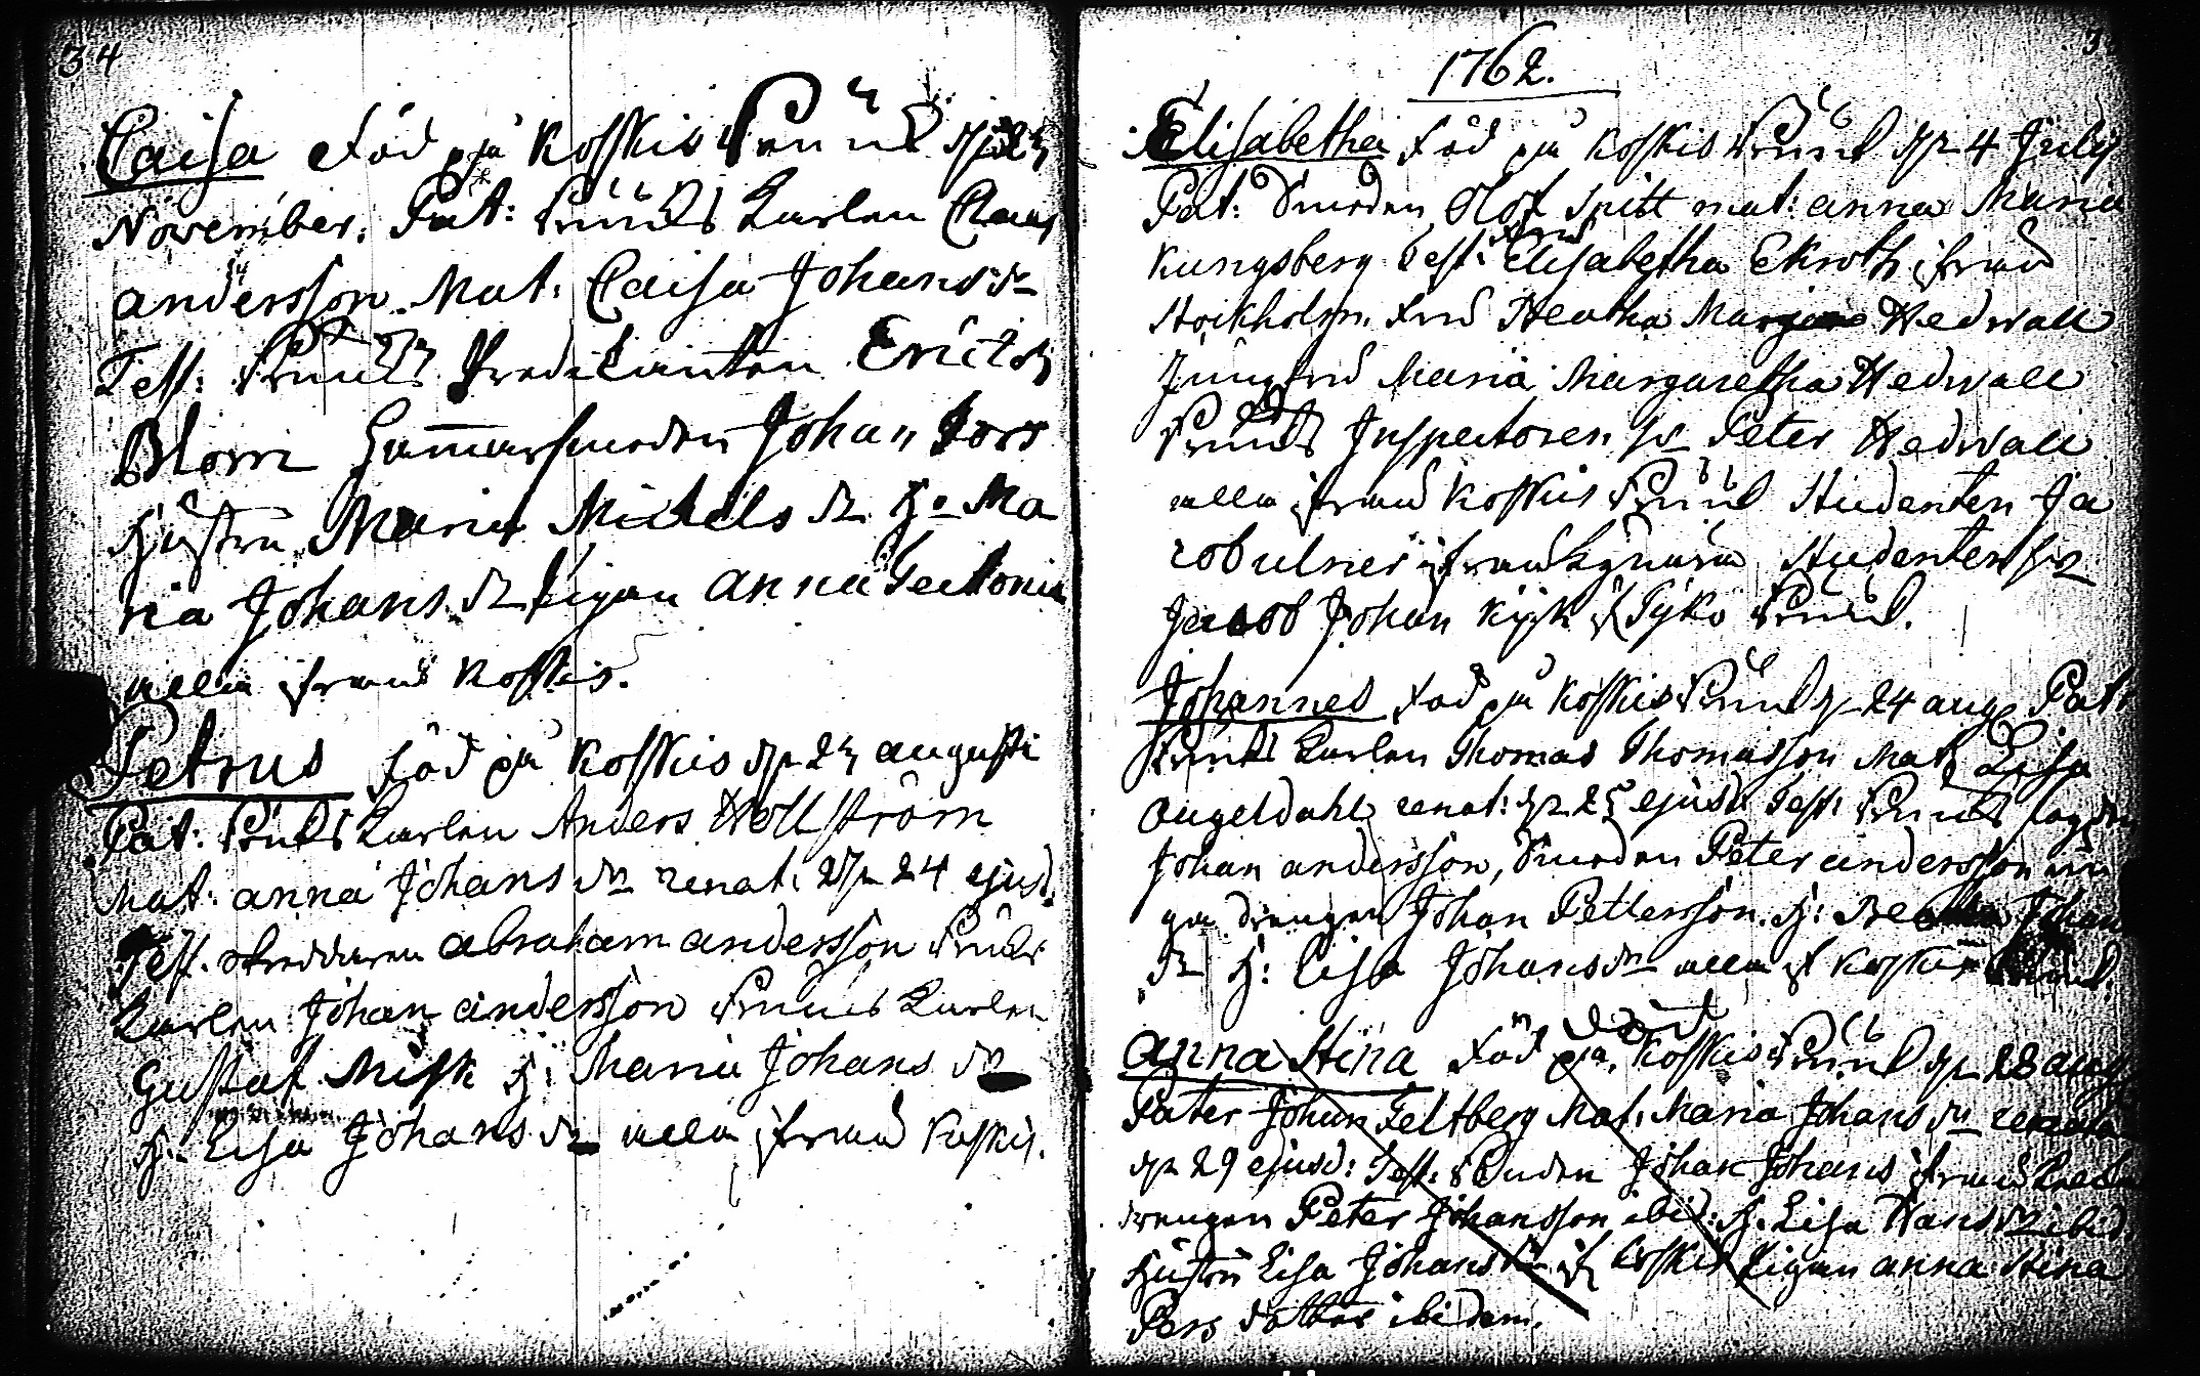 34
Caisa Föd på Koskis Bruuk
November. Pat: Bruuks Karlen Claus
andersson. Mat. Caisa Johansdr
Test: Bruuks Predikanten Erict
Blom Hammarsmeden Johan Fors
Hustru Maria Michels dr H. Ma
ria Johans dr Pigan anna
alla ifrån Koskis.
Petrus Föd på Koskis d 23 augusti
Pat: Bruks Karlen Anders Wollström
Mat: anna Johans dr renat: d 24 ejusd.
Test. Skreddaren abraham andersson Bruks
Karlen Johan andersson Bruuks Karlen
Gustaf Misk H: Maria Johans dr
H. Lisa Johans dr alla ifrån Koskis.
1762.
Elisabetha Föd på Koskis Bruuk d 4 July
Pat: Smeden Olof Spitt mat: anna Maria
Kungsberg Test: Fru Elisabetha Ekroth ifrån
Stockholm. Fru Beatha Hedwall
Jungfru Maria Margaretha Hedwall
Bruuks Inspectoren hr Peter Hedwall
alla ifrån Koskis Bruuk Studenten Ja
cob ulner ifrån Studenten hr
Jacob Johan Kijk if Tykö Bruuk.
Johannes Föd på Koskis Bruuk d 24 aug. Pat:
Bruks Karlen Thomas Thomasson Mat: Lisa
Ongeldahl renat: d 25 ejusd: Test: Bruuks
Johan andersson, Smeden Peter andersson un
ga drengen Johan Pettersson. H: Beatha Johans
dr H: Lisa Johansdr alla if Koskis Bruuk.
Död
anna Stina Föd på Koskis Bruuk d 28 aug
Pater Johan Feltberg Mat: Maria Johans dr renata
d 29 ejusd: Test: Bonden Johan Johans ifrån
drengen Peter Johansson ibid: H. Lisa Hans dr ibid.
Hustru Lisa Johans dr if Koskis Pigan anna Stina
Pers dotter ibidem.